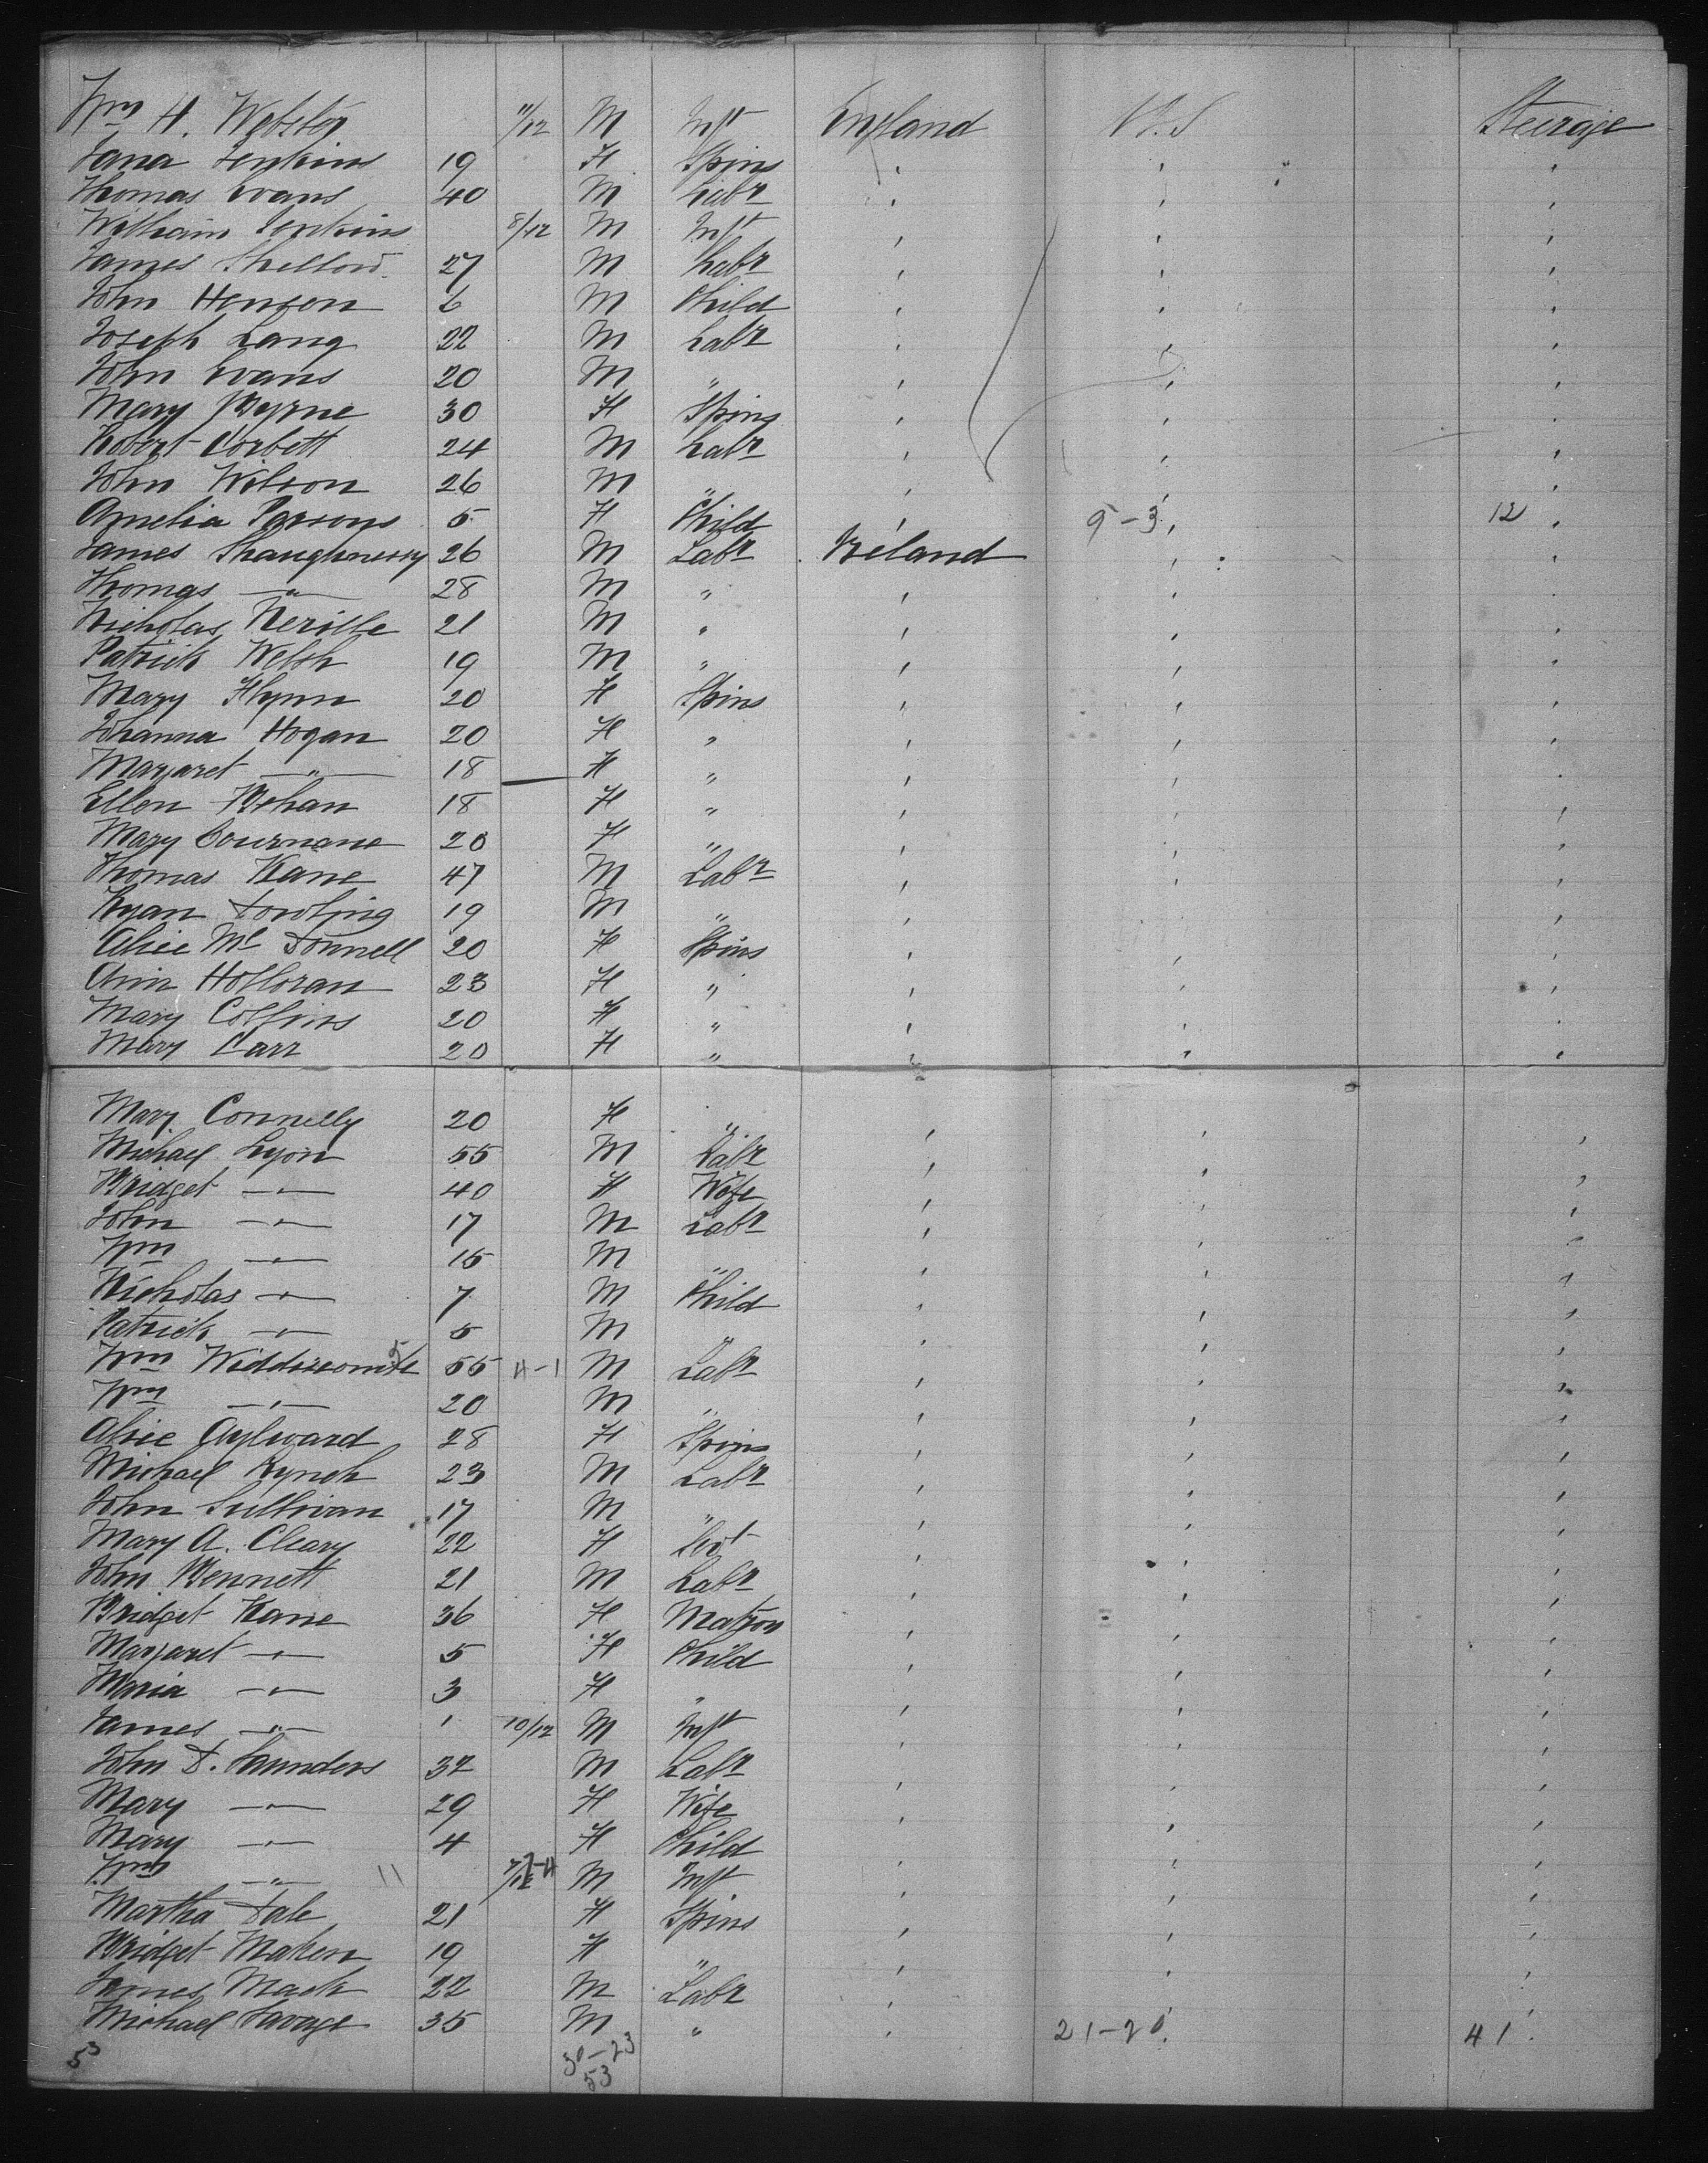 Wm H. Webster 11/12 M Inft England U.S Steerage
Jana Jenkins 19 F Spins " " "
Thomas Evans 40 M Labr " " "
William Jenkins 8/12 M Inft " " "
James Skellow 27 M Labr " " "
John Henson 6 M Child " " "
Joseph Lang 22 M Labr " " "
John Evans 20 M " " " "
Mary Byrne 30 F Spins " " "
Robert Corbett 24 M Labr " " "
John Wilson 26 M " " " "
Amelia Parsons 5 F Child " 9-3 " 12 "
James Shaughnessy 26 M Labr Ireland " "
Thomas —"— 28 M " " " "
Nicholas Neville 21 M " " " "
Patrick Welsh 19 M " " " "
Mary Flynn 20 F Spins " " "
Johanna Hogan 20 F " " " "
Margaret —"— 18 F " " " "
Ellen Behan 18 F " " " "
Mary Cournane 20 F " " " "
Thomas Kane 47 M Labr " " "
Ryan Dowling 19 M " " " "
Alice Mc Donnell 20 F Spins " " "
Ann Holloran 23 F " " " "
Mary Collins 20 F " " " "
Mary Carr 20 F " " " "
Mary Connelly 20 F " " " "
Michael Lyon 55 M Labr " " "
Bridget —"— 40 F Wife " " "
John —"— 17 M Labr " " "
Wm —"— 15 M " " " "
Nicholas —"— 7 M Child " " "
Patrick —"— 5 M " " " "
Wm 55 4-1 M Labr " " "
Wm —"— 20 M " " " "
Alice Aylward 28 F Spins " " "
Michael Lynch 23 M Labr " " "
John Sullivan 17 M " " " "
Mary A. Cleary 22 F Servt " " "
John Bennett 21 M Labr " " "
Bridget Kane 36 F Matron " " "
Margaret —"— 5 F Child " " "
Maria —"— 3 F " " " "
James —"— 1 10/12 M Inft " " "
John D. Saunders 32 M Labr " " "
Mary —"— 29 F Wife " " "
Mary —"— 4 F Child " " "
Wm —"— 11 M Inft " " "
Martha Dale 21 F Spins " " "
Bridget Maken 19 F " " " "
James Mack 22 M Labr " " "
Michael Savage 35 M " " 21-20 " 41 "
53 30-23
53